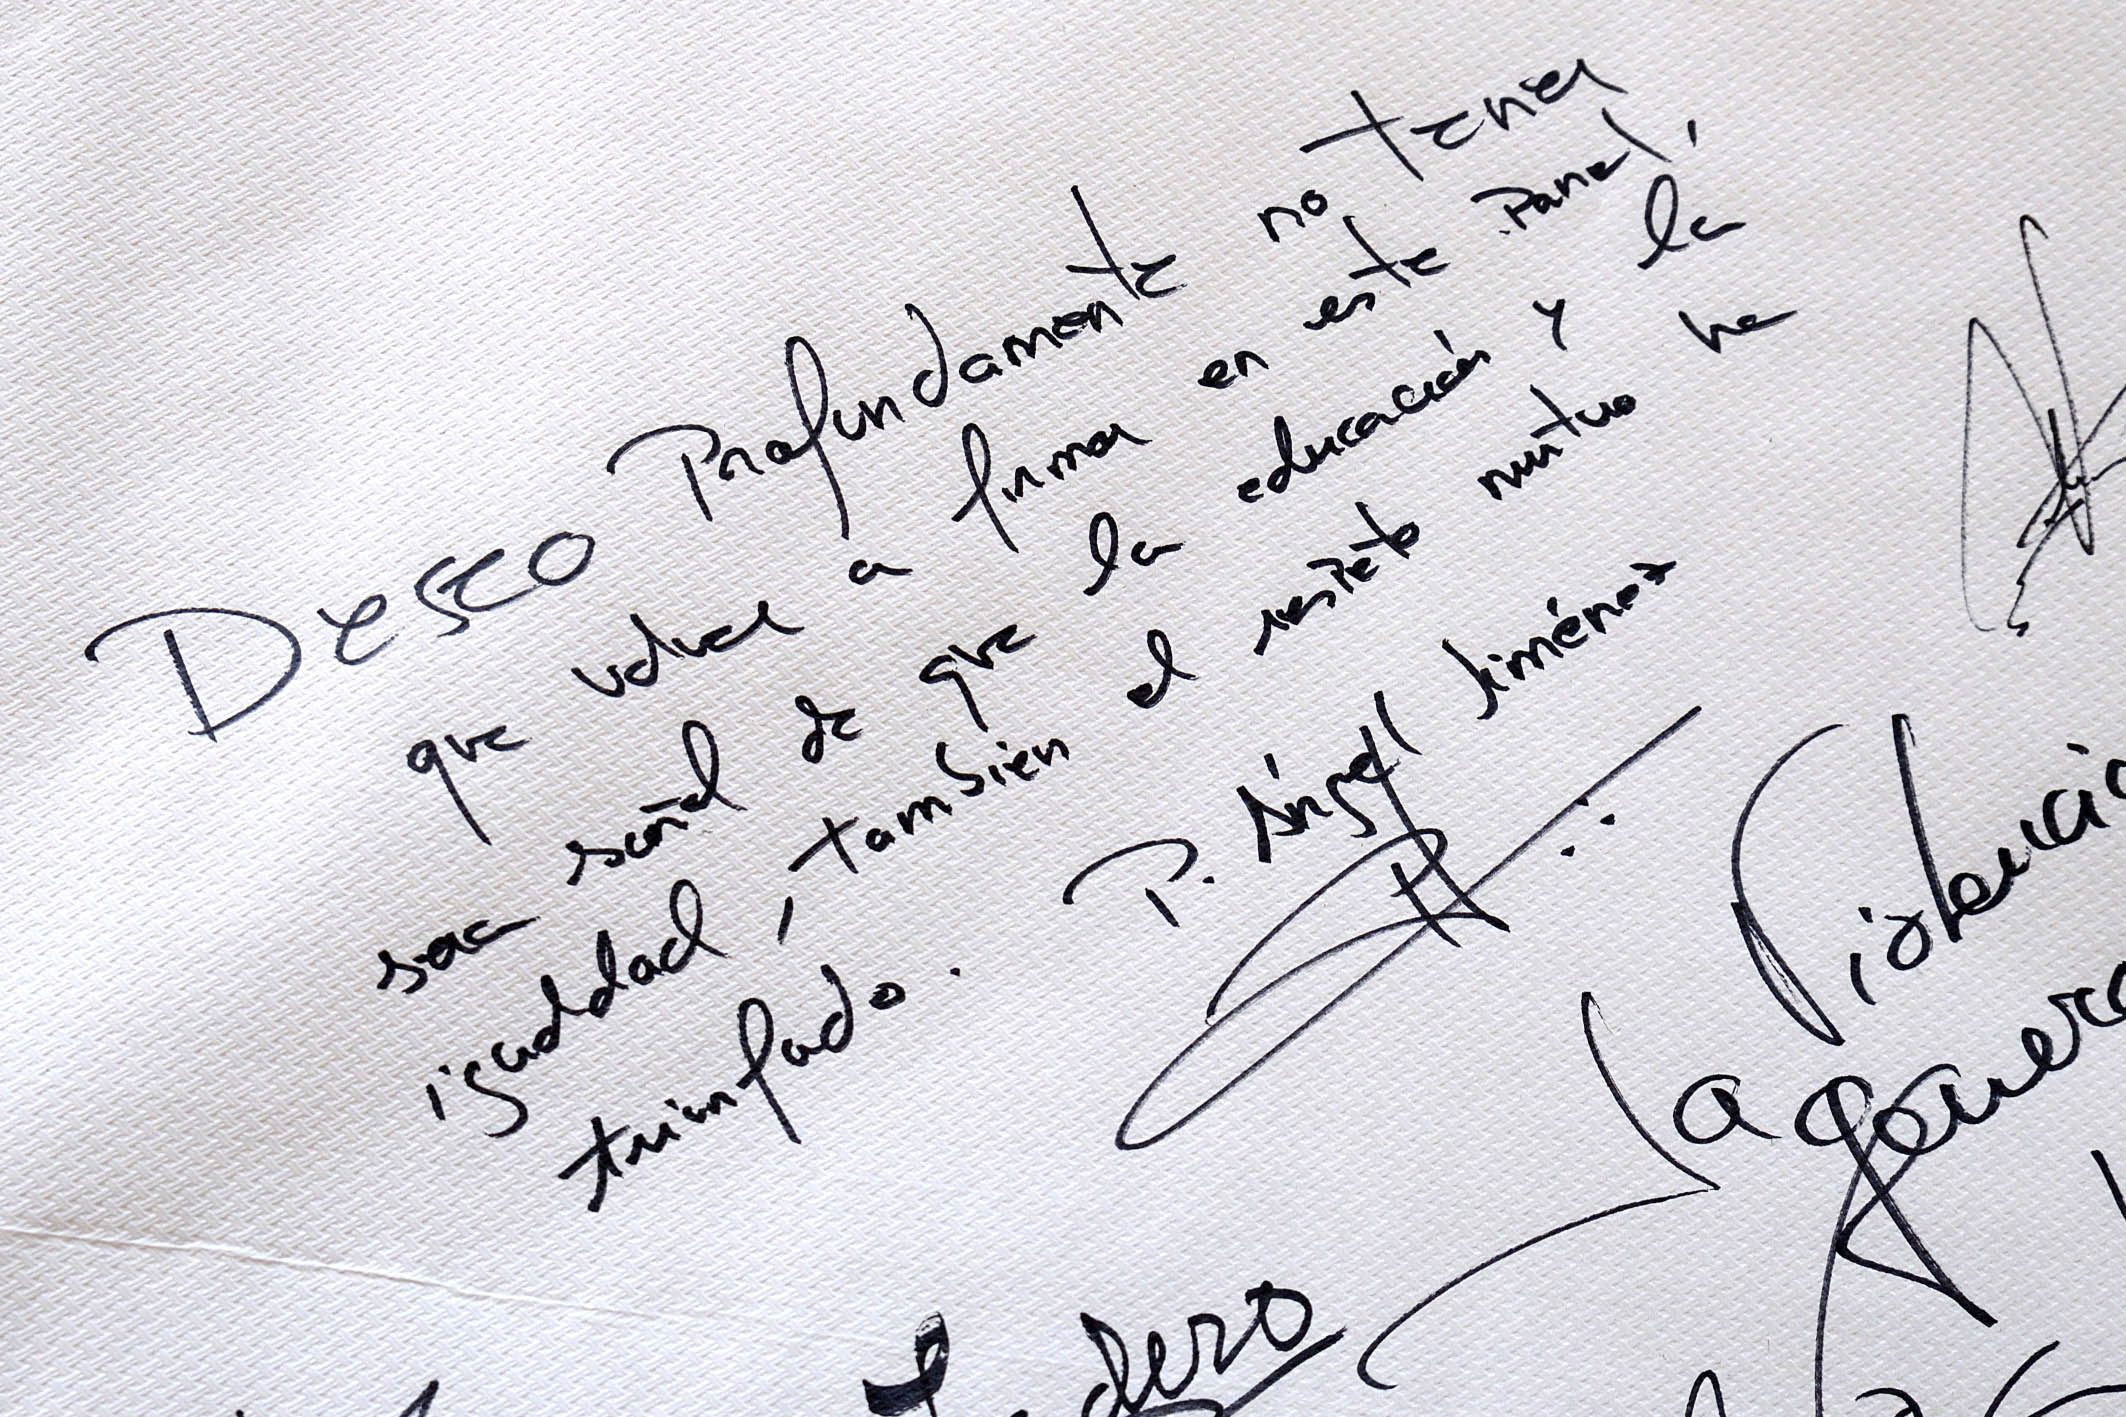 Deseo Profundamente no tener
que volver a firmar en este Panel,
sea señal de que la educación y la
igualdad, tambien el respeto mutuo ha
triunfado.
P. Ángel Jiménez
La